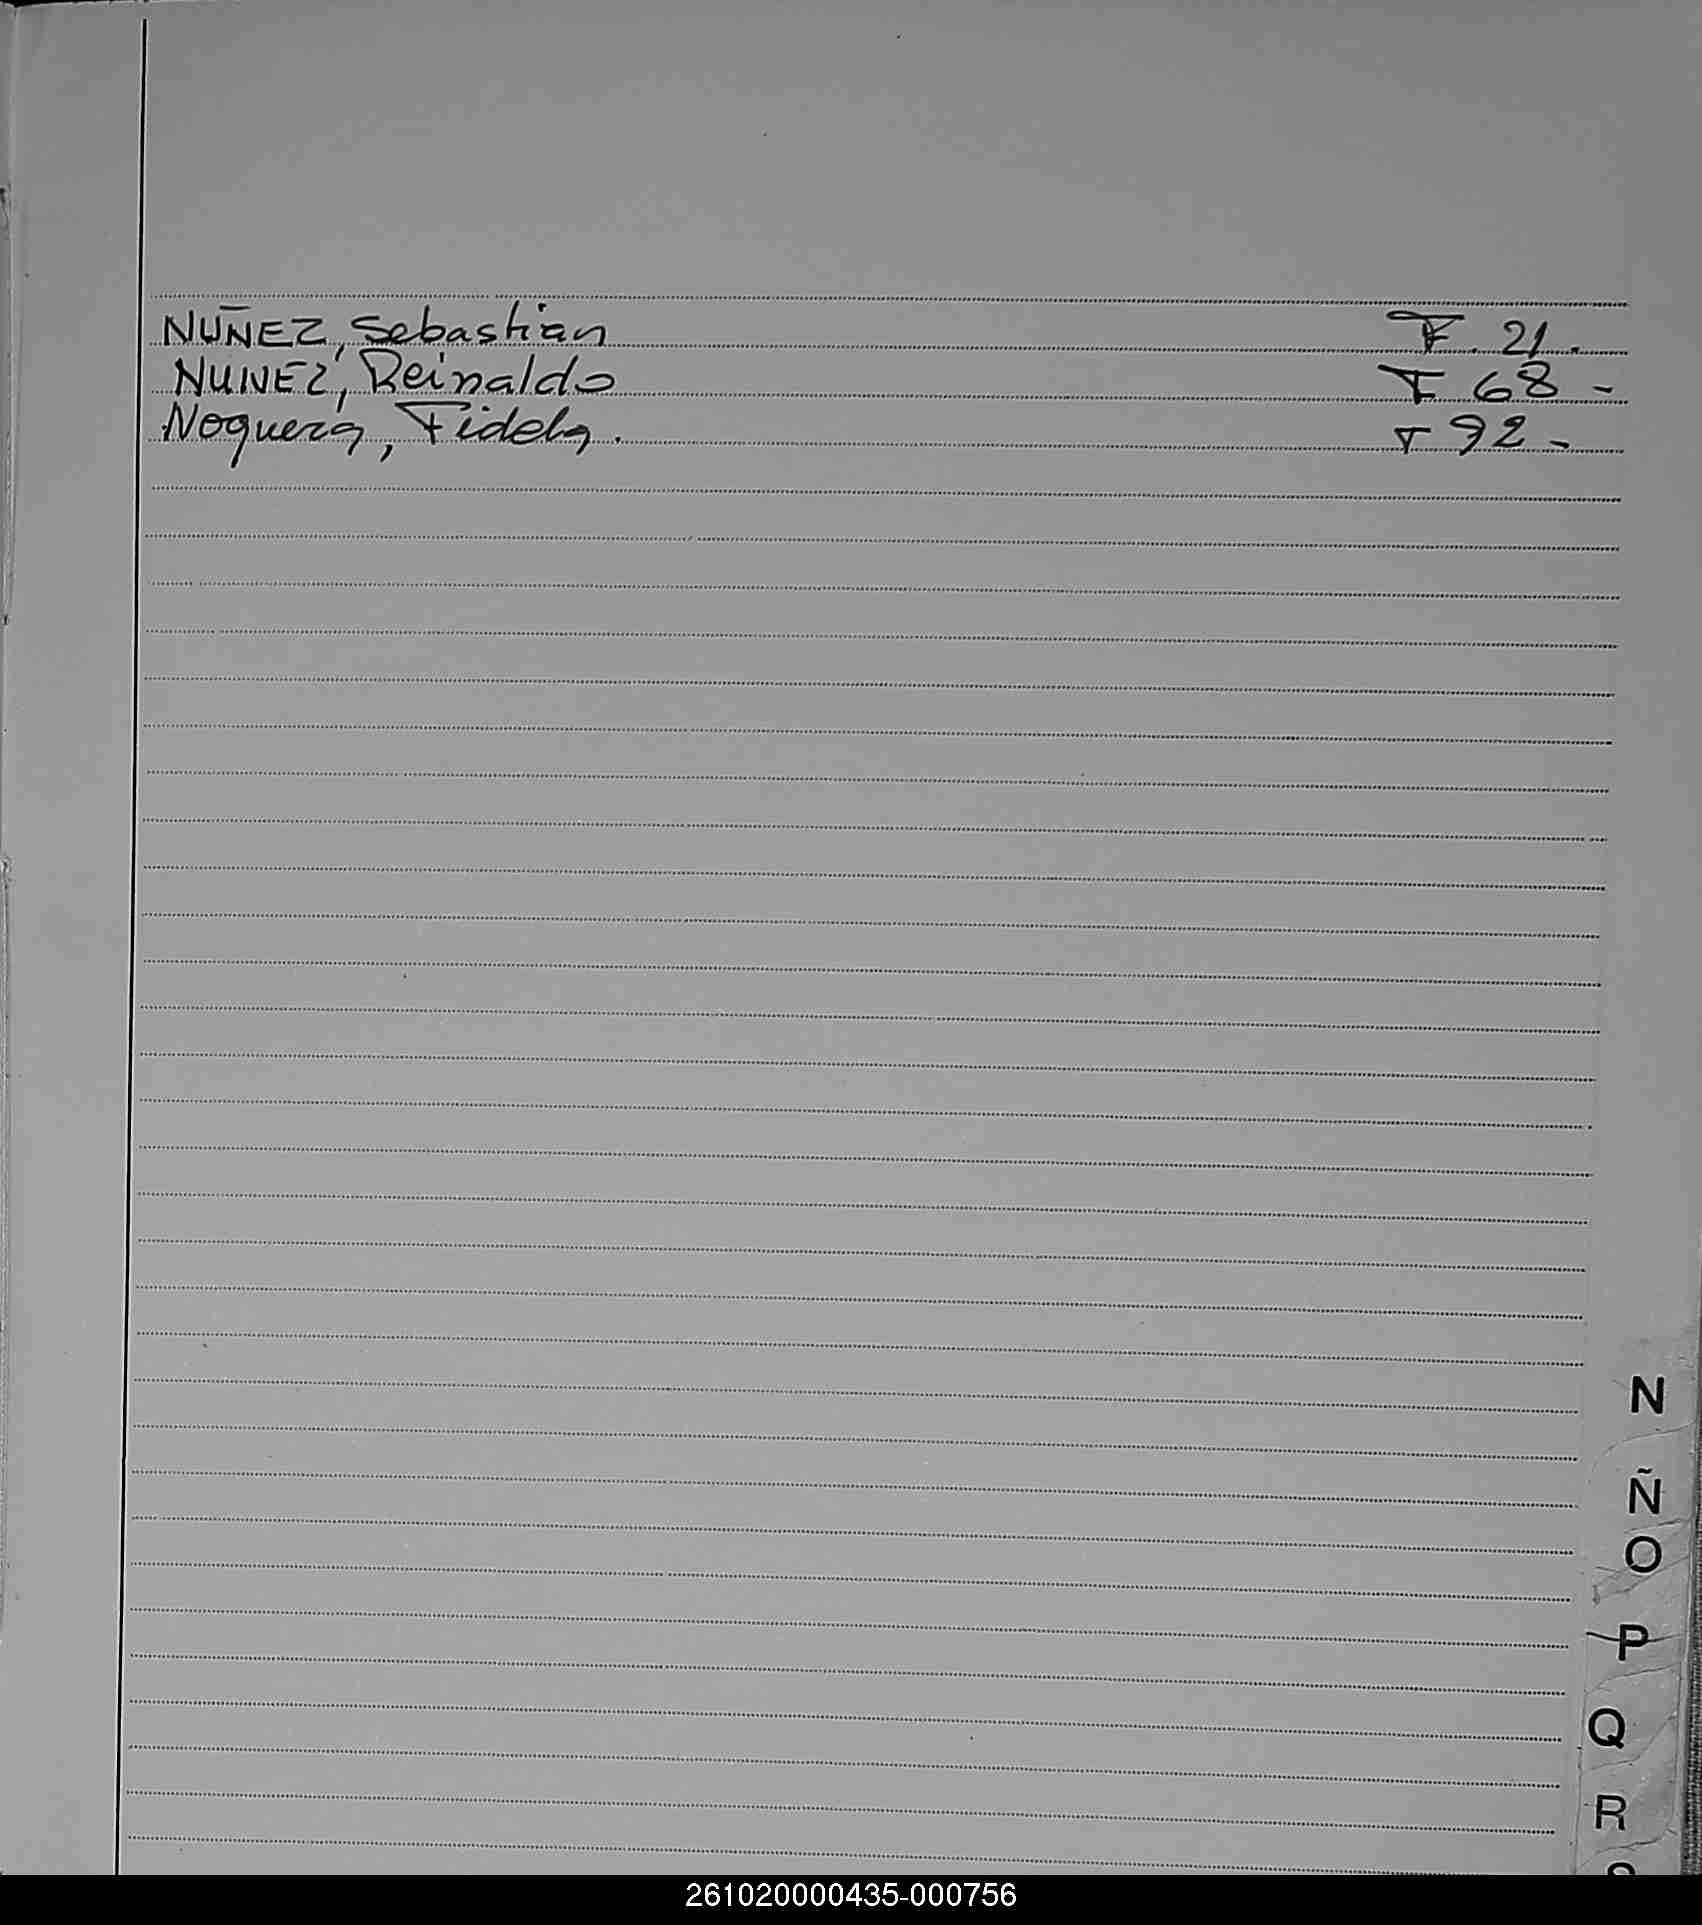 NUÑEZ, Sebastian F. 21.
NUNEZ, Reinaldo F 68 -
Noguera, Fidela. F 92 -
N
Ñ
O
P
Q
R
261020000435-000756